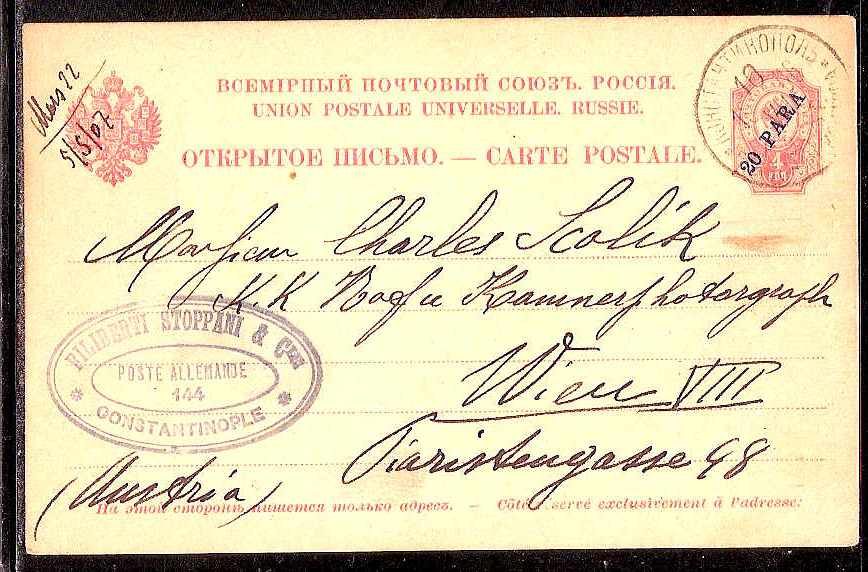 Mers 22
5/5/07
ВСЕМІРНЫЙ ПОЧТОВЫЙ СОЮЗЪ. РОССІЯ.
UNION POSTALE UNIVERSELLE. RUSSIE.
ОТКРЫТОЕ ПИСЬМО. — CARTE POSTALE.
КОНСТАНТИНОПОЛЬ
10
20 PARA
4
КОП
Monsieur Charles Scolik
K. K Hof u Kammerphotograph
Wien VIII
Piaristengasse 48
(Austria)
FILIBERTI STOPPANI & Cie
POSTE ALLEMANDE
144
CONSTANTINOPLE
На этой сторонѣ пишется только адресъ. — Côté réservé exclusivement à l'adresse.